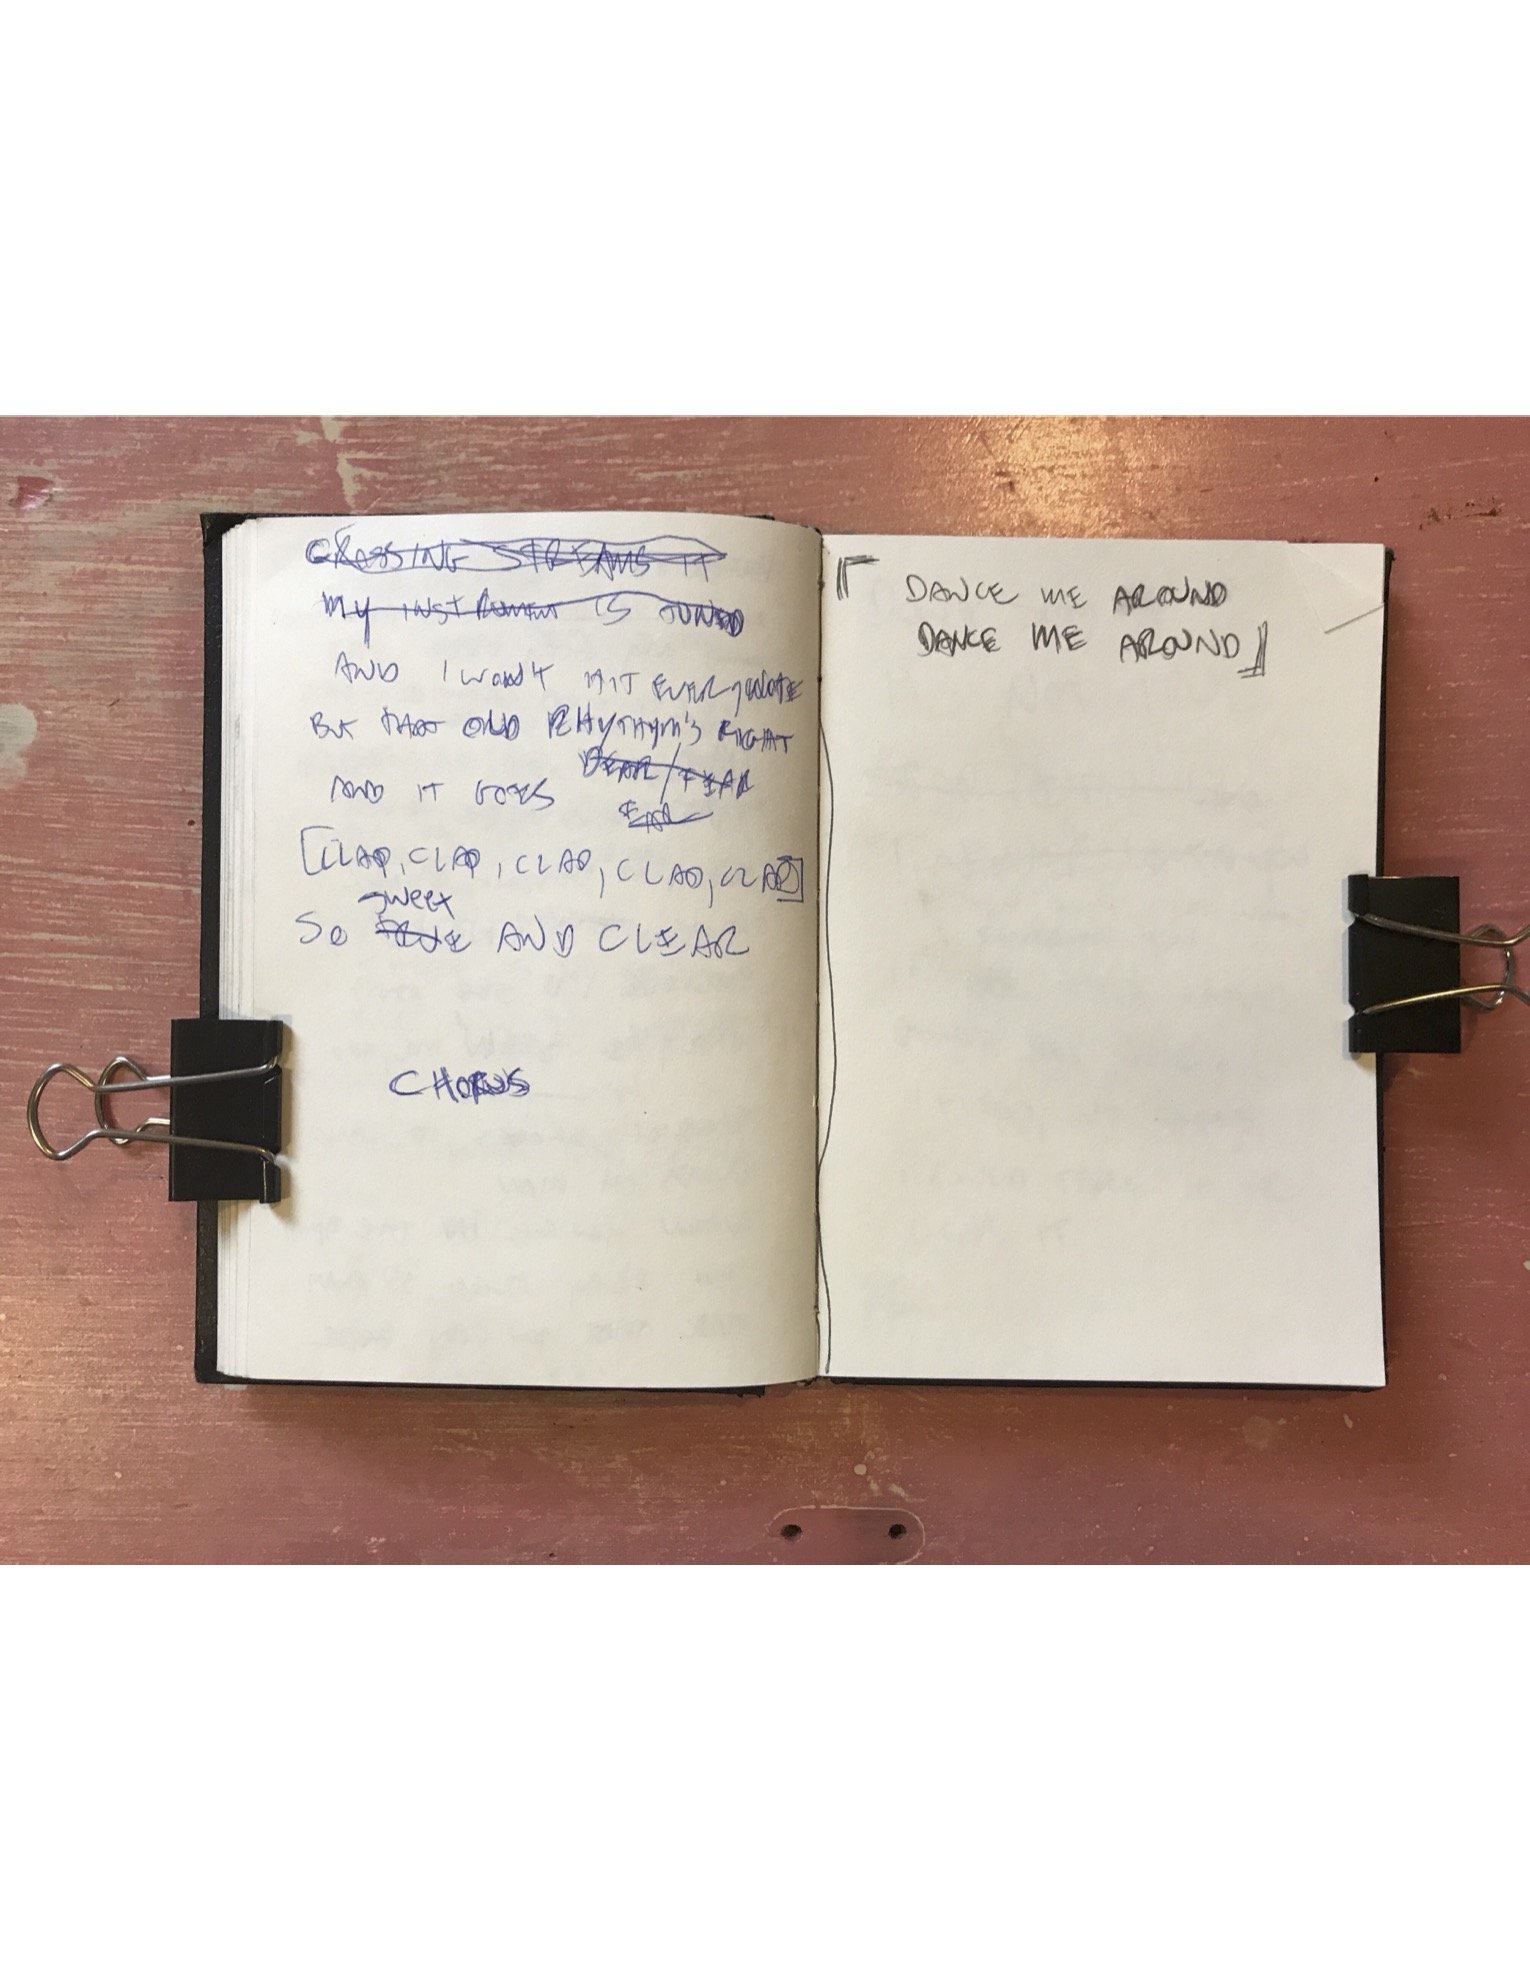 CROSSING STREAMS IT
MY INSTRUMENT IS TUNED
AND I WON'T HIT EVERY NOTE
BUT THAT OLD RHYTHYM'S RIGHT
DEAR/FEAR
AND IT GOES
EAR
[CLAP, CLAP, CLAP, CLAP, CLAP]
SWEET
SO TRUE AND CLEAR
CHORUS
[DANCE ME AROUND
DANCE ME AROUND]